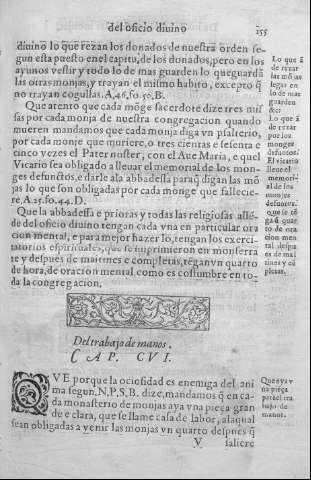 del oficio diuino
155
diuino lo que rezan los donados de nuestra orden se
gun esta puesto en el capitu, de los donados, pero en los
ayunos vestir y todo lo de mas guarden lo que guardā
las otras monjas, y trayan el mismo habito, excepto q̄
no trayan cogullas. A. 46, fo. 50. B.
Que atento que cada mōge sacerdote dize tres mis
sas por cada monja de nuestra congregacion quando
mueren mandamos que cada monja diga vn psalterio,
por cada monje que muriere, o tres cientas e sesenta e
cinco vezes el Pater noster, con el Aue Maria, e quel
Vicario sea obligado a lleuar el memorial de los mon-
ges defunctos, e darle ala abbadessa paraq̄ digan las mō
jas lo que son obligadas por cada monge que fallecie-
re. A. 25. fo. 44. D.
Que la abbadessa e prioras y todas las religiosas allē-
de del oficio diuino tengan cada vna en particular ora
cion mental, e para mejor hazer lo, tengan los exerci-
tatorios espirituales, que se imprimieron en monserra
te y despues de maitines e completas, tēgan vn quarto
de hora, de oracion mental, como es costumbre en to-
da la congregacion,
Lo que ā
de rezar
las mōjas
legas en
lo de mas
guarden
&c.
Lo que ā
de rezar
por los
monges
defunctos.
El vicario
lleue el
memori-
al de los
monjes
defunctos.
que se tē
ga ū quar
to de ora
cion men
tal despu
es de mai
tines y cō
pletas.
Del trabajo de manos.
CAP. CVI.
QVE porque la ociosidad es enemiga del ani
ma segun, N. P. S. B. dize, mandamos q̄ en ca-
da monasterio de monjas aya vna pieça gran
de e clara, que se llame casa de labor, a laqual
sean obligadas a venir las monjas vn quarto despues q̄
Que aya v
na pieça
para el tra
bajo de
manos.
V
saliere